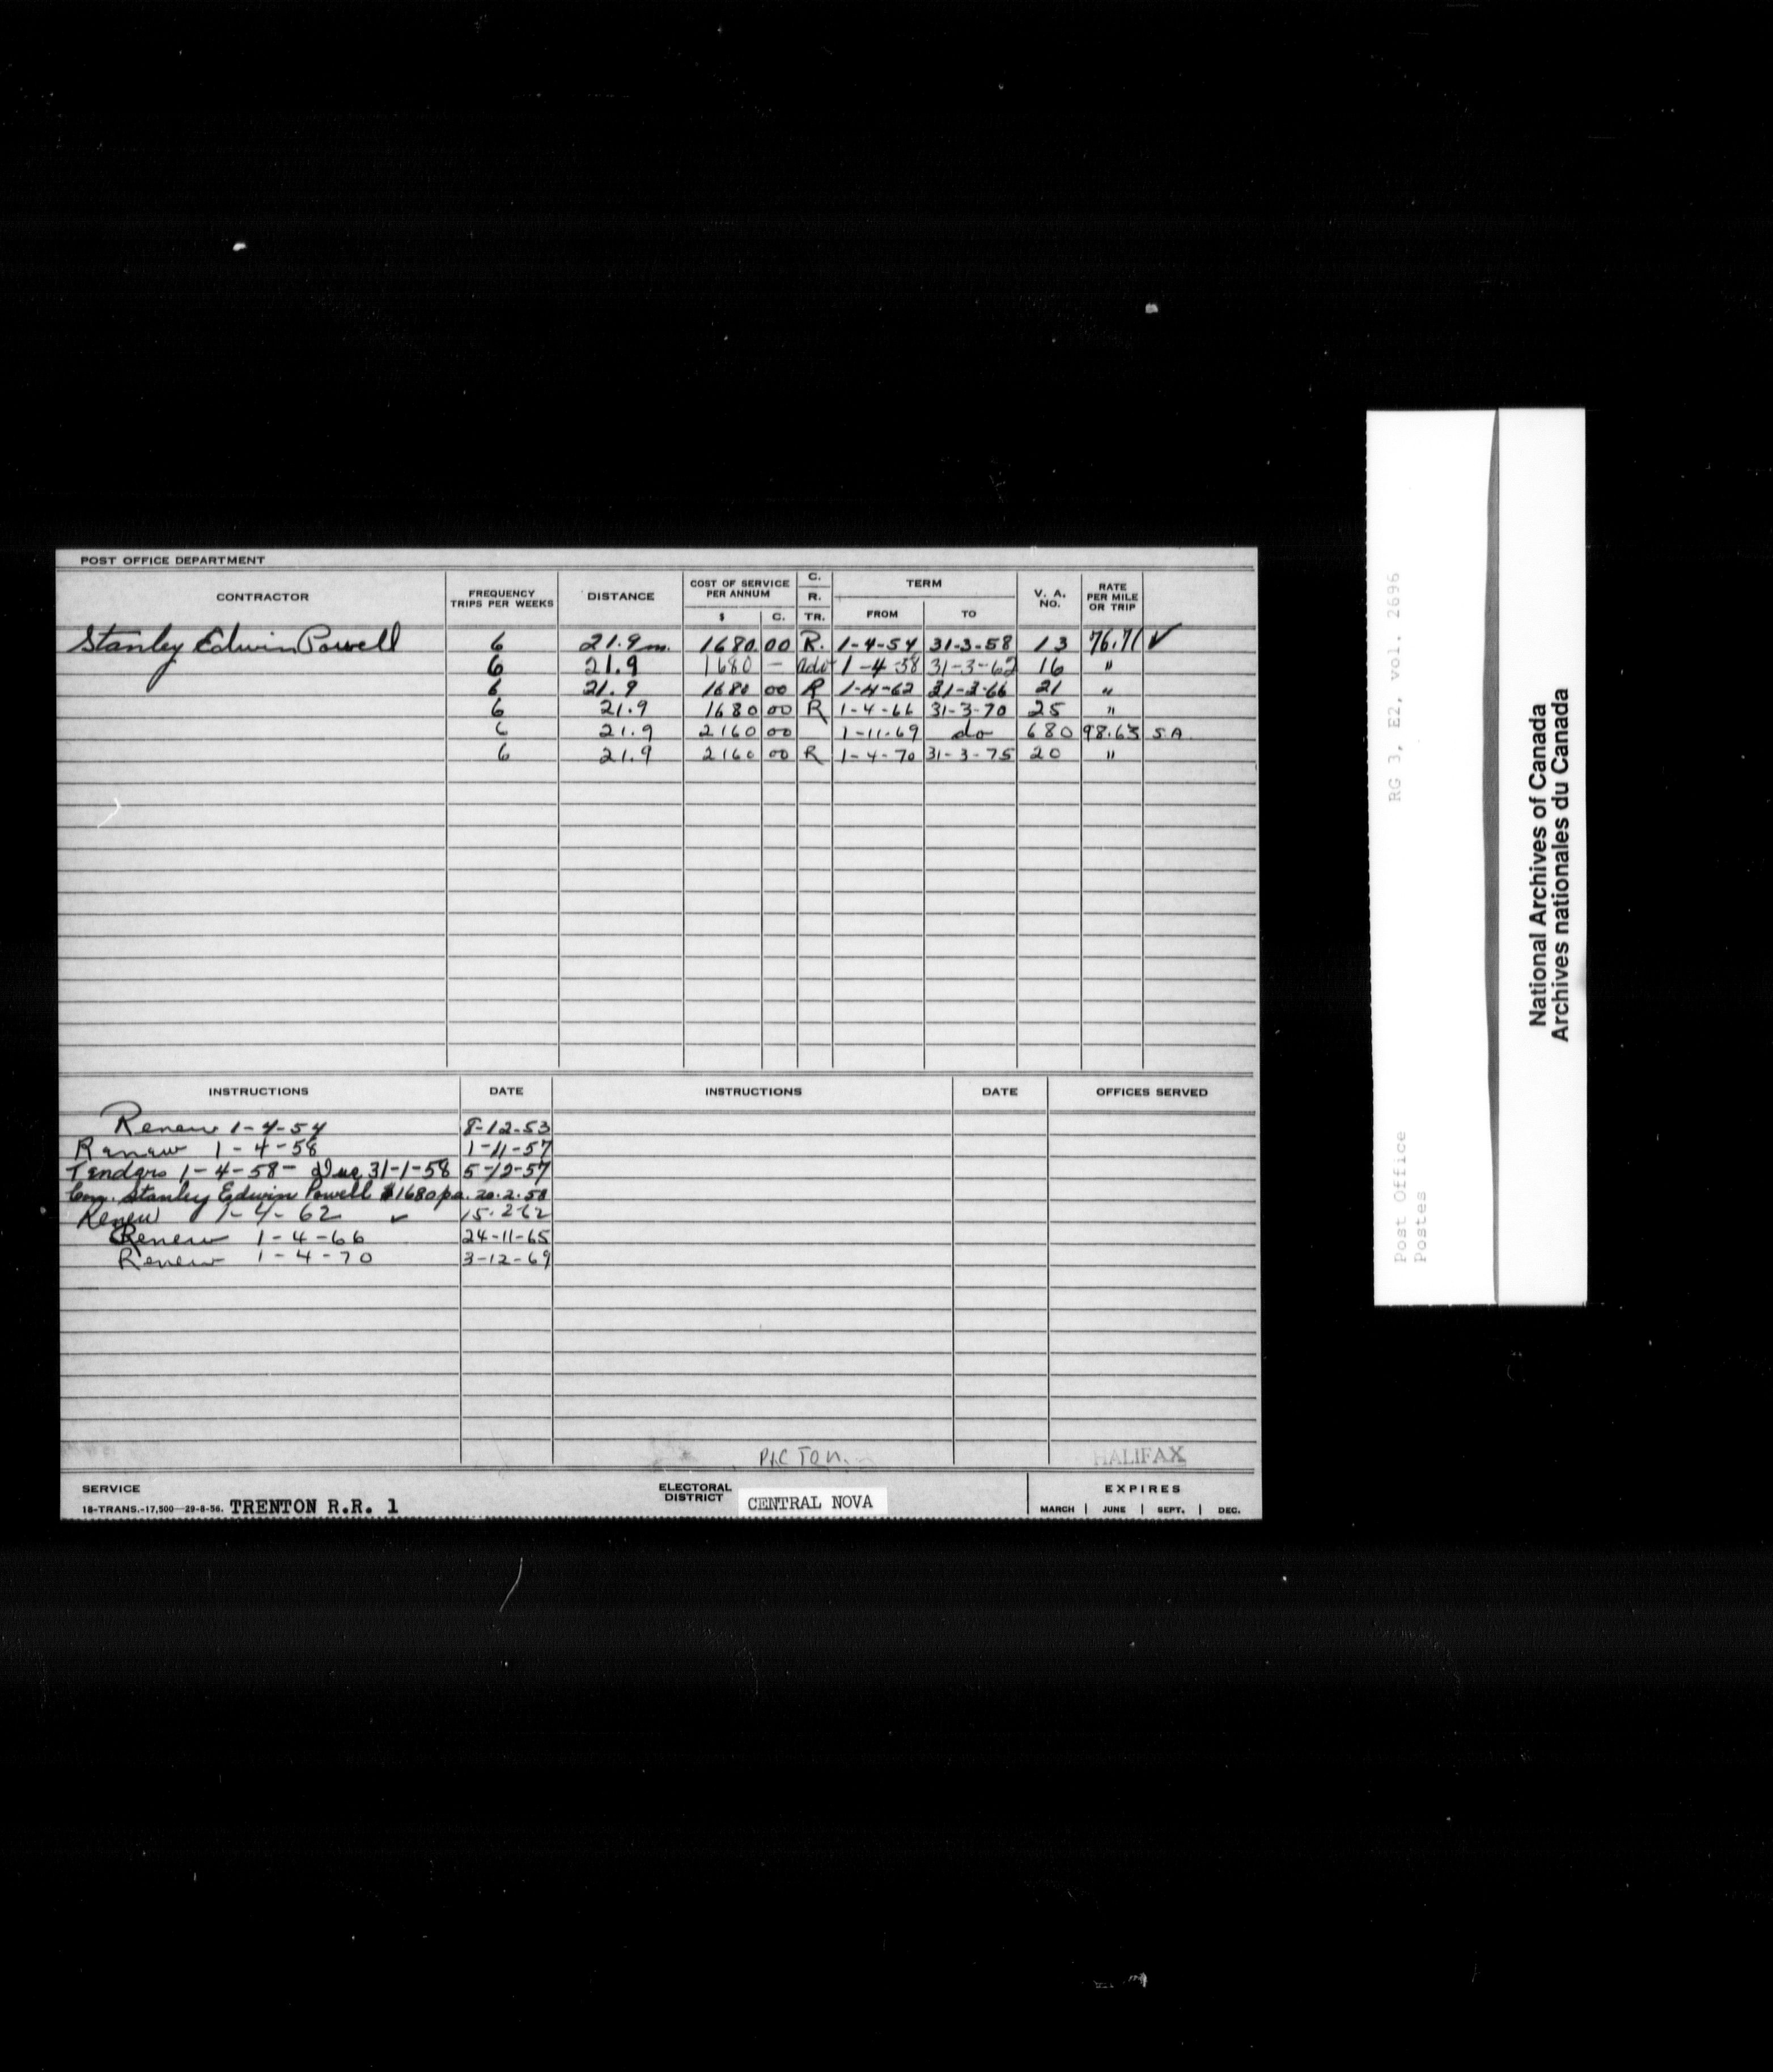 POST OFFICE DEPARTMENT
CONTRACTOR FREQUENCY TRIPS PER WEEKS DISTANCE COST OF SERVICE PER ANNUM $ C. C. R. TR. TERM FROM TO V. A. NO. RATE PER MILE OR TRIP
Stanley Edwin Powell 6 21.9 m. 1680 00 R. 1-4-54 31-3-58 13 76.71 ✓
6 21.9 1680 — 1-4-58 31-3-62 16 "
6 21.9 1680 00 R 1-4-62 31-3-66 21 "
6 21.9 1680 00 R 1-4-66 31-3-70 25 "
6 21.9 2160 00 1-11-69 do 680 98.63 S.A
6 21.9 2160 00 R 1-4-70 31-3-75 20 "
INSTRUCTIONS DATE INSTRUCTIONS DATE OFFICES SERVED
Renew 1-4-54 8-12-53
Renew 1-4-58 1-11-57
Tenders 1-4-58 - Due 31-1-58 5-12-57
Stanley Edwin Powell $1680 pa. 20.2.58
Renew 1-4-62 ✓ 15.2.62
Renew 1-4-66 24-11-65
Renew 1-4-70 3-12-69
PICTON.
HALIFAX
SERVICE
18-TRANS.-17,500—29-8-56. TRENTON R.R. 1
ELECTORAL DISTRICT CENTRAL NOVA
EXPIRES
MARCH | JUNE | SEPT. | DEC.
RG 3, E2, vol. 2696
Post Office
Postes
National Archives of Canada
Archives nationales du Canada